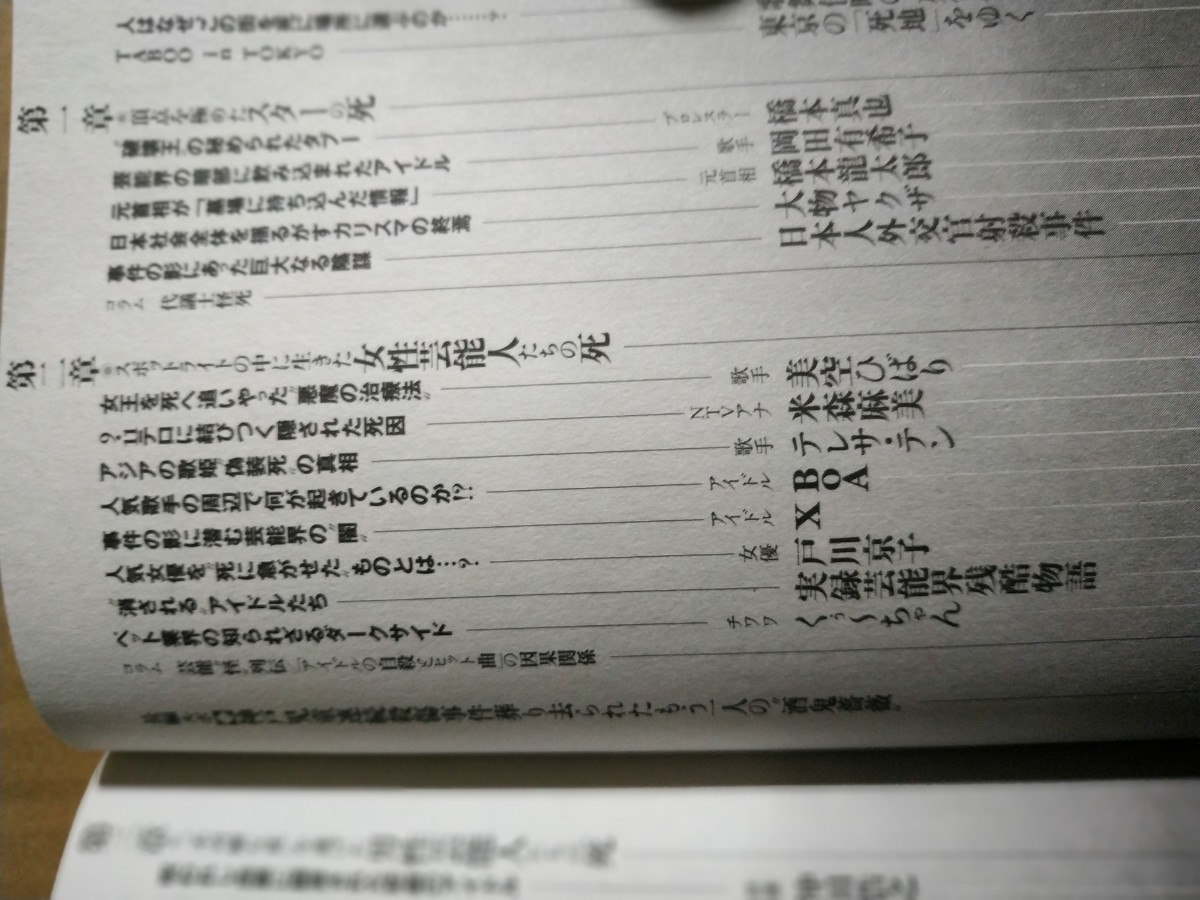 東京の「死地」をゆく
人はなぜこの街を死に場所に選ぶのか……?
TABOO in TOKYO
第一章 ●頂点を極めたスターの死
プロレスラー 橋本真也
"破壊王"の秘められたタブー
歌手 岡田有希子
芸能界の暗部に飲み込まれたアイドル
元首相 橋本龍太郎
元首相が「墓場に持ち込んだ情報」
大物ヤクザ
日本社会全体を揺るがすカリスマの終焉
日本人外交官射殺事件
事件の影にあった巨大なる陰謀
コラム 代議士怪死
第二章 ●スポットライトの中に生きた女性芸能人たちの死
歌手 美空ひばり
女王を死へ追いやった"悪魔の治療法"
NTVアナ 米森麻美
9・11テロに結びつく隠された死因
歌手 テレサ・テン
アジアの歌姫"偽装死"の真相
アイドル BoA
人気歌手の周辺で何が起きているのか!?
アイドル X
事件の影に潜む芸能界の"闇"
女優 戸川京子
人気女優を"死に急がせた"ものとは…?
実録芸能界残酷物語
"消される"アイドルたち
チワワ くぅ〜ちゃん
ペット業界の知られざるダークサイド
コラム 芸能"怪"列伝「アイドルの自殺とヒット曲」の因果関係
神戸児童連続殺傷事件葬り去られたもう一人の"酒鬼薔薇"